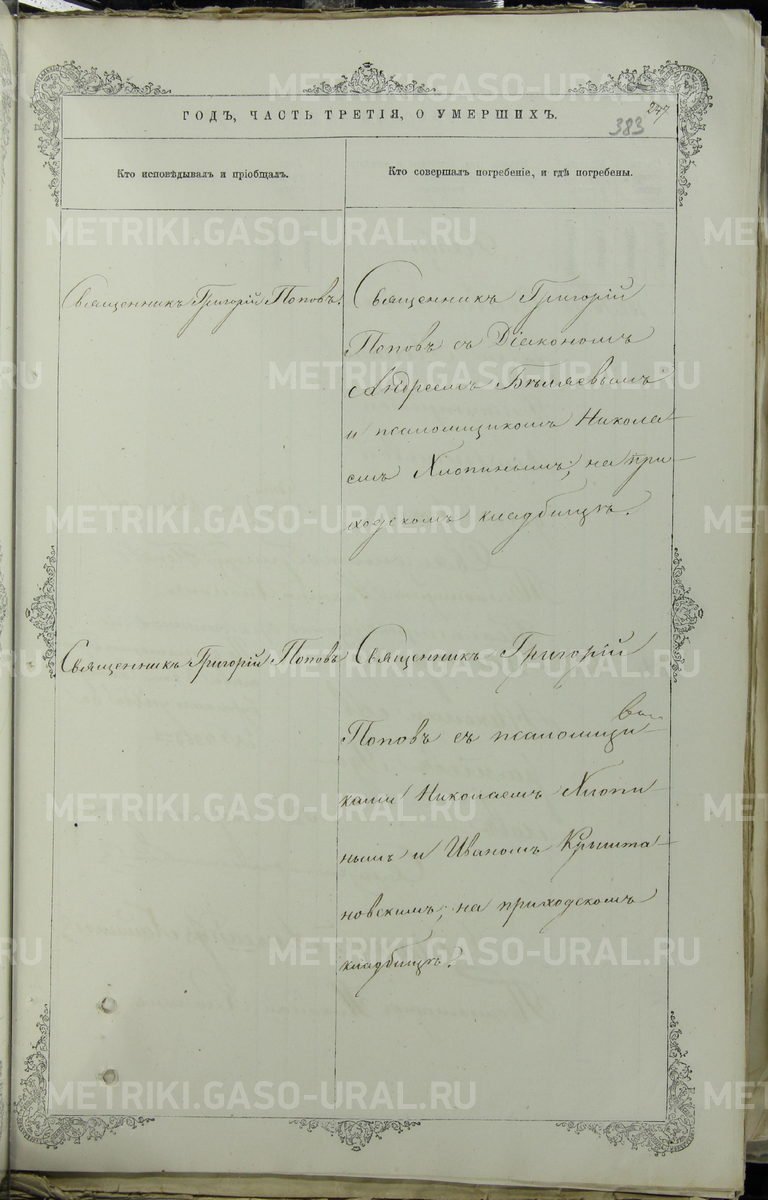 ГОДЪ, ЧАСТЬ ТРЕТІЯ, О УМЕРШИХЪ.
247
383
Кто исповѣдывалъ и пріобщалъ.
Кто совершалъ погребеніе, и гдѣ погребены.
Священникъ Григорій Поповъ.
Священникъ Григорій
Поповъ съ Діакономъ
Андреемъ Бѣляевымъ
и псаломщикомъ Никола-
емъ Хлопинымъ; на при-
ходскомъ кладбищѣ.
Священникъ Григорій Поповъ
Священникъ Григорій
Поповъ съ псаломщи-
ками Николаемъ Хлопи-
нымъ и Иваномъ
новскимъ; на приходскомъ
кладбищѣ.
METRIKI.GASO-URAL.RU